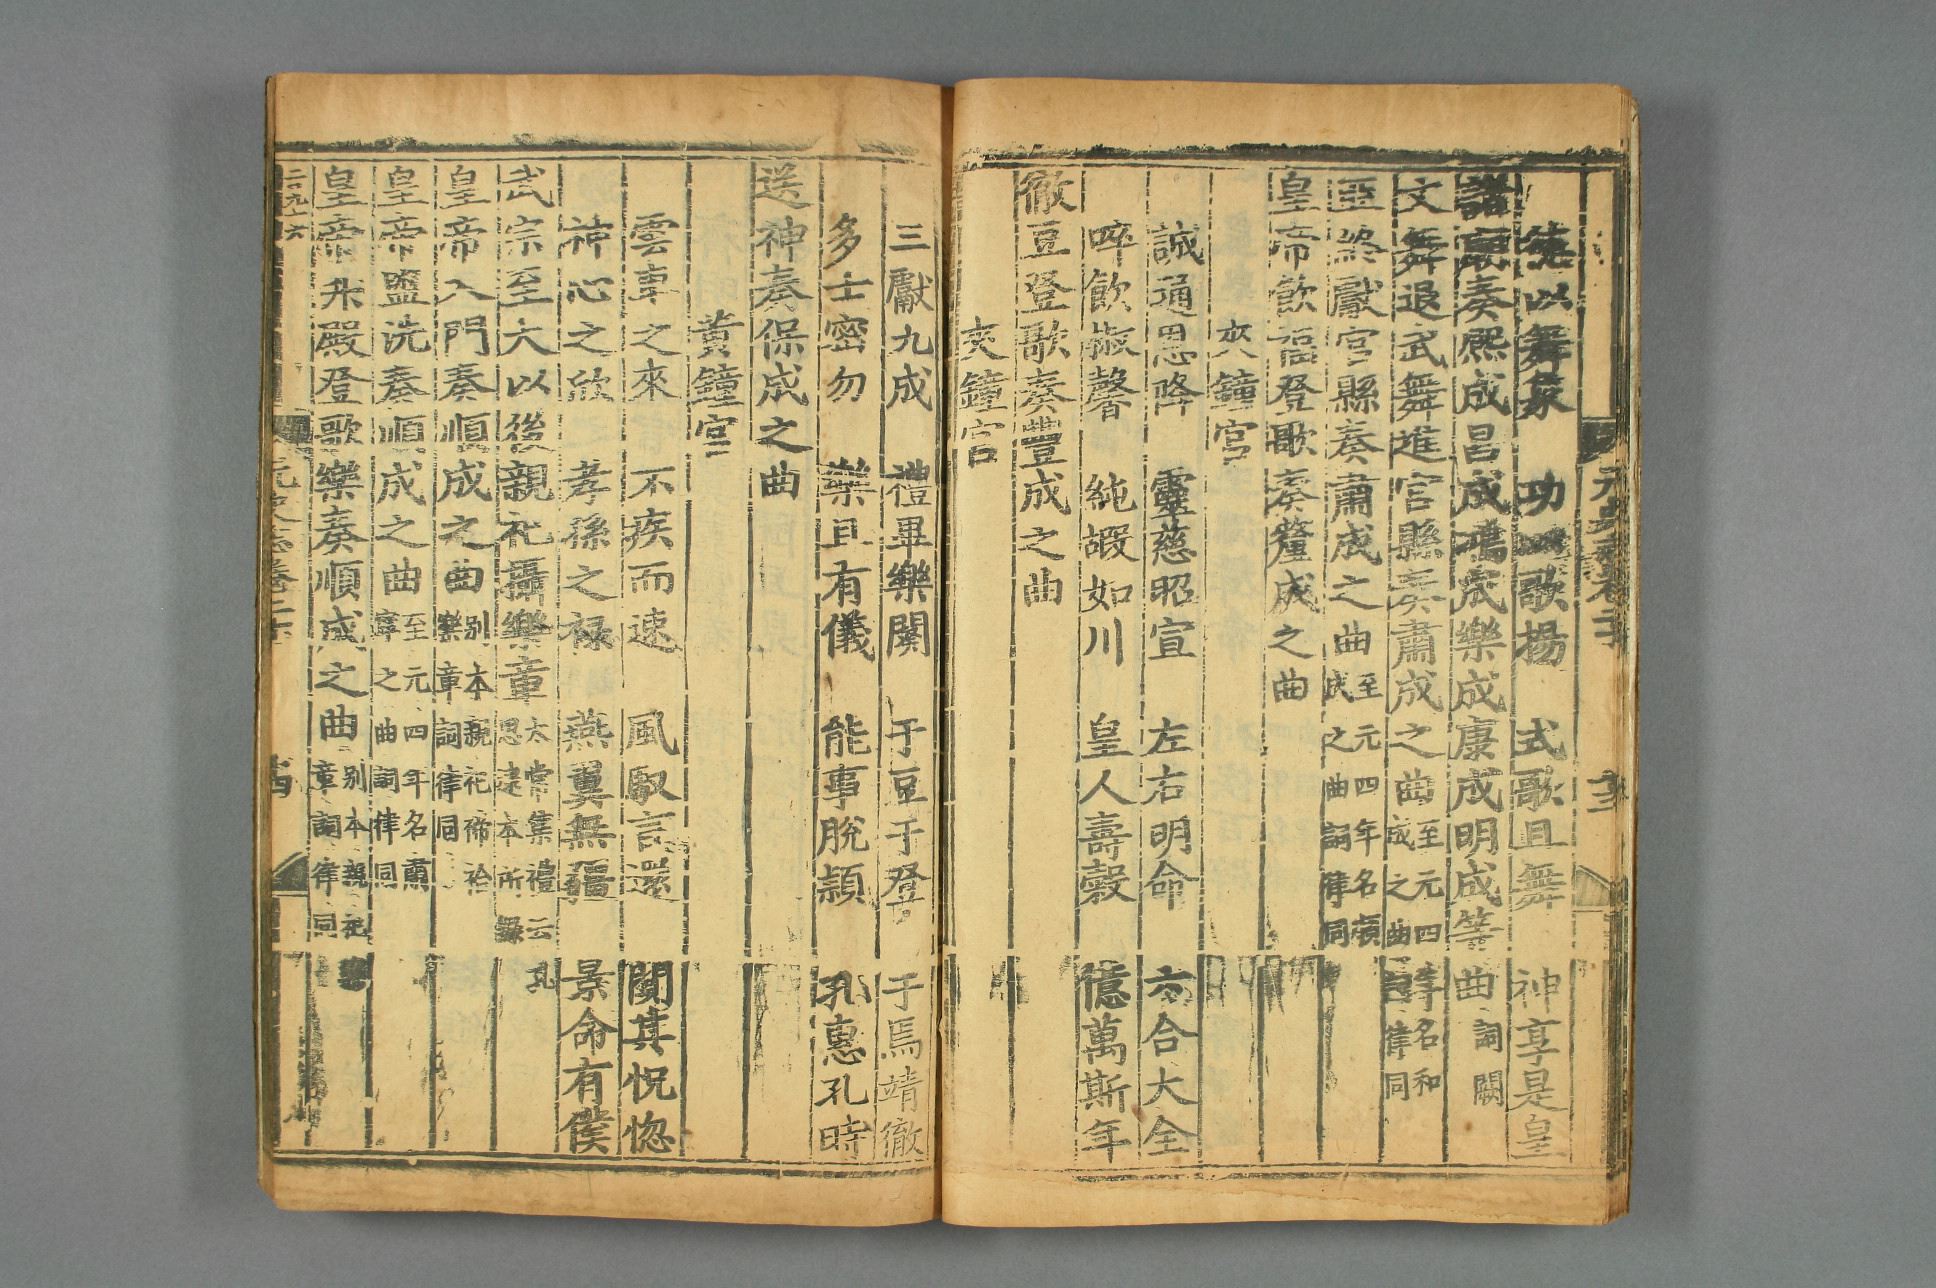 元史志卷二十
十三
舞象　功以歌揚　式歌且舞　神享是皇
諸廟奏熙成昌成鴻成樂成康成明成等曲詞闕
文舞退武舞進宮縣奏肅成之曲至元四年名和成之曲詞律同
亞終獻宮縣奏肅成之曲至元四年名順成之曲詞律同
皇帝飲福登歌奏釐成之曲
夾鐘宮
誠通恩降　靈慈昭宣　左右明命　六合大全
啐飲椒馨　純嘏如川　皇人壽穀　億萬斯年
徹豆登歌奏豐成之曲
夾鐘宮
三獻九成　禮畢樂闋　于豆于登　于焉靖徹
多士密勿　樂且有儀　能事脫穎　孔惠孔時
送神奏保成之曲
黃鐘宮
雲車之來　不疾而速　風馭言還　闃其怳惚
神心之欣　孝孫之祿　燕翼無疆　景命有僕
武宗至大以後親祀攝樂章太常集禮云孔思逮本所錄
皇帝入門奏順成之曲別本親祀禘祫樂章詞律同
皇帝盥洗奏順成之曲至元四年名肅寧之曲詞律同
皇帝升殿登歌樂奏順成之曲別本親祀樂章詞律同
二千九十六
元史志卷二十
十四